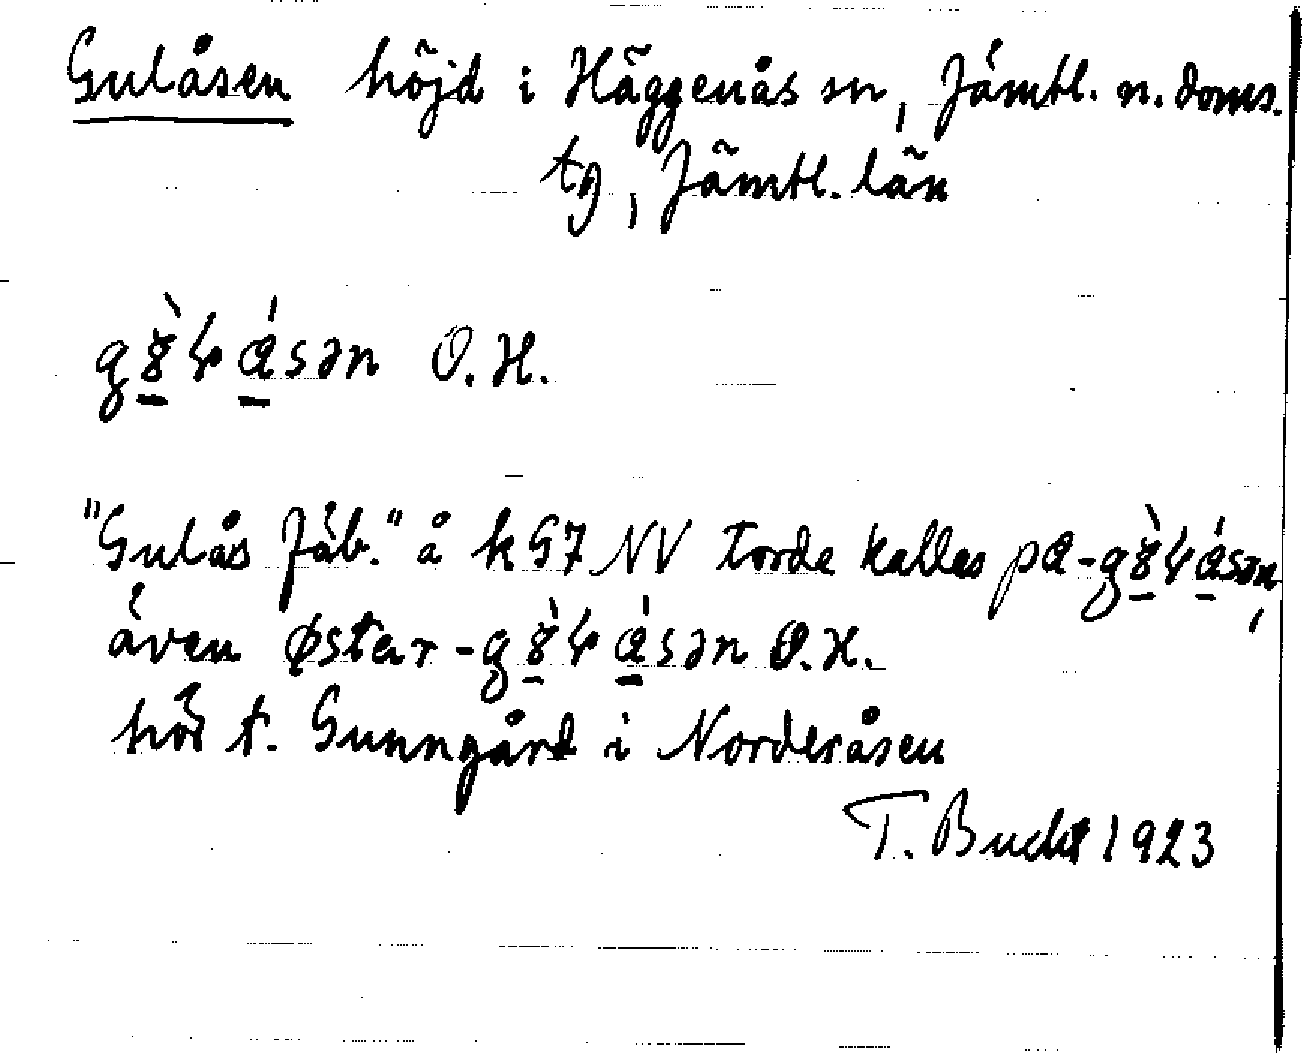 Gulåsen höjd i Häggenås sn, Jämtl. n. doms.
tg, Jämtl. län
g8̠̀ɽɑ̠́sən O.H.
"Gulås Fäb." å k 57 NV torde kallas pɑ-g8̠̀ɽɑ̠́sən,
även østər-g8̠̀ɽɑ̠́sən O.H.
hör t. Gunngård i Norderåsen
T. Bucht 1923